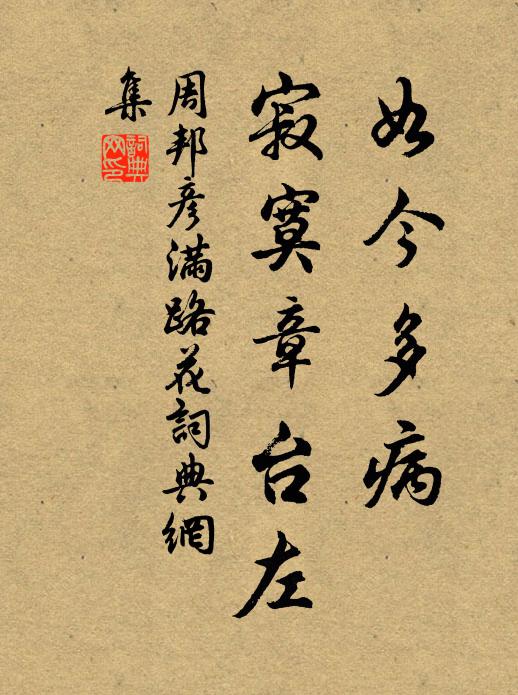 如今多病
寂寞章台左
周邦彦滿路花詞典網
集
詞典
网印